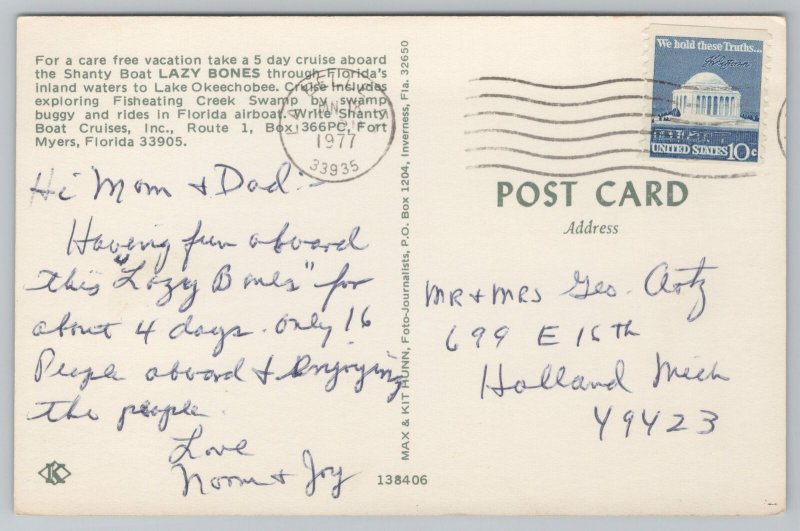 For a care free vacation take a 5 day cruise aboard
the Shanty Boat LAZY BONES through Florida's
inland waters to Lake Okeechobee. Cruise includes
exploring Fisheating Creek Swamp by swamp
buggy and rides in Florida airboat. Write Shanty
Boat Cruises, Inc., Route 1, Box 366PC, Fort
Myers, Florida 33905.
1977
33935
Hi Mom + Dad:-
Having fun aboard
this "Lazy Bones" for
about 4 days. Only 16
People aboard + Enjoying
the people.
Love
Norm + Joy
K
MAX & KIT HUNN, Foto-Journalists, P.O. Box 1204, Inverness, Fla. 32650
138406
We hold these Truths...
UNITED STATES 10c
POST CARD
Address
MR + MRS Geo. Artz
699 E 16th
Holland Mich
49423